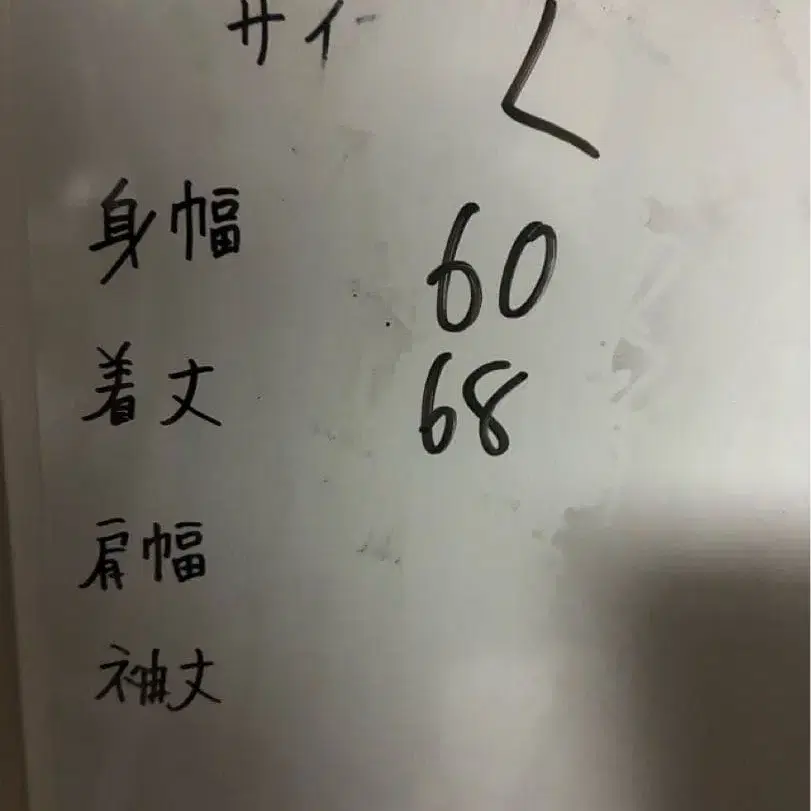 サイ L
身幅 60
着丈 68
肩幅
袖丈